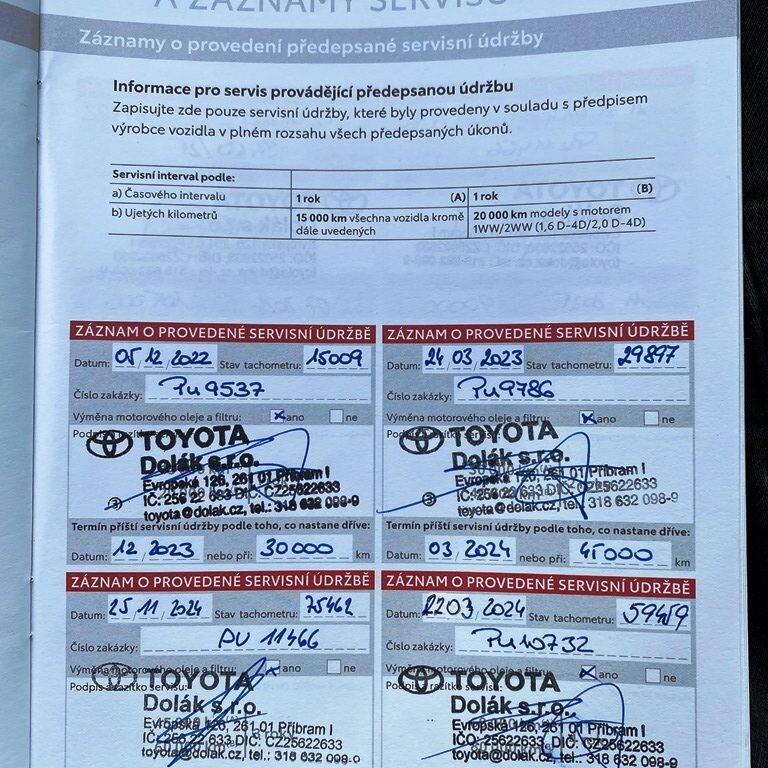 A ZÁZNAMY SERVISU
Záznamy o provedení předepsané servisní údržby
Informace pro servis provádějící předepsanou údržbu
Zapisujte zde pouze servisní údržby, které byly provedeny v souladu s předpisem
výrobce vozidla v plném rozsahu všech předepsaných úkonů.
Servisní interval podle:
a) Časového intervalu 1 rok (A) 1 rok (B)
b) Ujetých kilometrů 15 000 km všechna vozidla kromě 20 000 km modely s motorem
dále uvedených 1WW/2WW (1,6 D-4D/2,0 D-4D)
ZÁZNAM O PROVEDENÉ SERVISNÍ ÚDRŽBĚ
Datum: 05 12 2022 Stav tachometru: 15009
Číslo zakázky: Pu 9537
Výměna motorového oleje a filtru: ano ne
TOYOTA
Dolák s.r.o.
Evropská 126, 261 01 Příbram I
IČ: 256 22 633 DIČ: CZ25622633
toyota@dolak.cz, tel.: 318 632 098-9
Termín příští servisní údržby podle toho, co nastane dříve:
Datum: 12 / 2023 nebo při: 30 000 km
ZÁZNAM O PROVEDENÉ SERVISNÍ ÚDRŽBĚ
Datum: 24 03 2023 Stav tachometru: 29897
Číslo zakázky: Pu 9786
Výměna motorového oleje a filtru: ano ne
TOYOTA
Dolák s.r.o.
Evropská 126, 261 01 Příbram I
IČ: 256 22 633 DIČ: CZ25622633
toyota@dolak.cz, tel.: 318 632 098-9
Termín příští servisní údržby podle toho, co nastane dříve:
Datum: 03 / 2024 nebo při: 45 000 km
ZÁZNAM O PROVEDENÉ SERVISNÍ ÚDRŽBĚ
Datum: 25 11 2024 Stav tachometru: 75462
Číslo zakázky: PU 11466
Výměna motorového oleje a filtru: ano ne
Podpis a razítko servisu:
TOYOTA
Dolák s.r.o.
Evropská 126, 261 01 Příbram I
IČO: 25622633 DIČ: CZ25622633
toyota@dolak.cz, tel.: 318 632 098-9
ZÁZNAM O PROVEDENÉ SERVISNÍ ÚDRŽBĚ
Datum: 22 03 2024 Stav tachometru: 59459
Číslo zakázky: Pu 10732
Výměna motorového oleje a filtru: ano ne
Podpis a razítko servisu:
TOYOTA
Dolák s.r.o.
Evropská 126, 261 01 Příbram I
IČO: 25622633, DIČ: CZ25622633
toyota@dolak.cz, tel.: 318 632 098-9